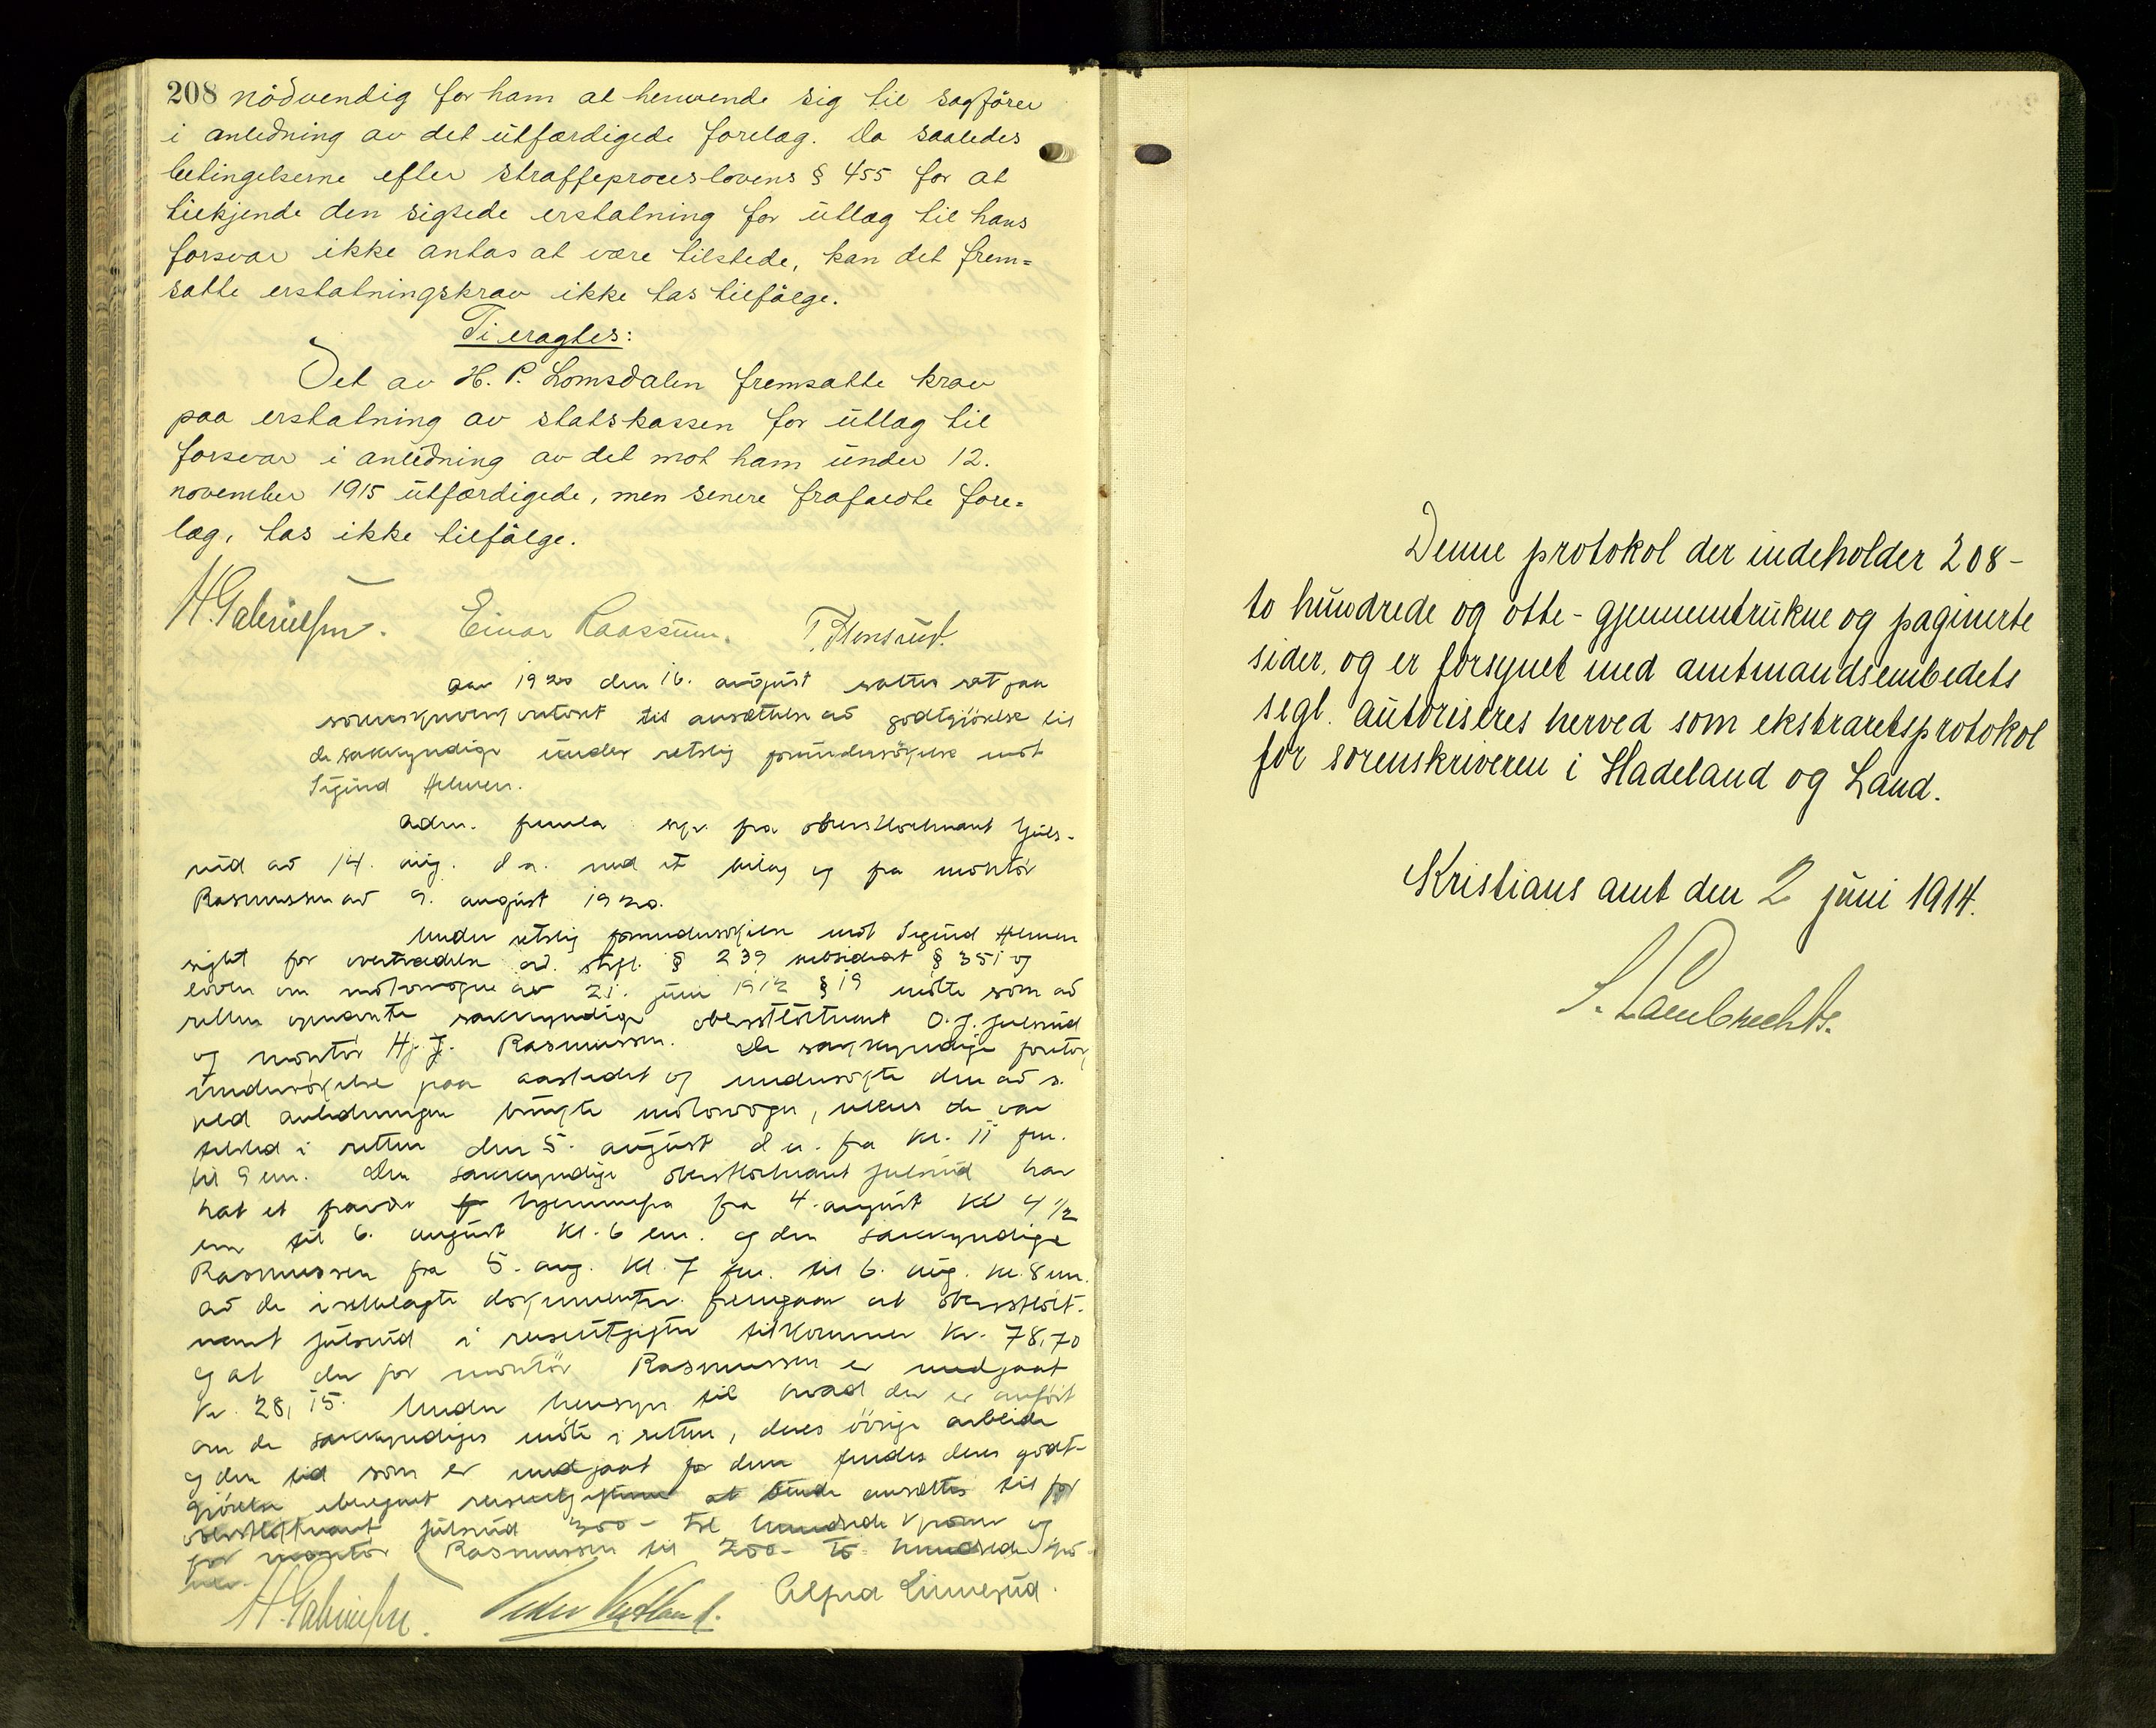 208 nödvendig for ham at henvende sig til sagförer
i anledning av det utfærdigede forelæg. Da saaledes
betingelserne efter straffeproceslovens § 455 for at
tilkjende den sigtede erstatning for utlæg til hans
forsvar ikke antas at være tilstede, kan det frem=
satte erstatningskrav ikke tas tilfölge.
Ti eragtes:
Det av H. P. Lomsdalen fremsatte krav
paa erstatning av statskassen for utlæg til
forsvar i anledning av det mot ham under 12.
november 1915 utfærdigede, men senere frafaldte fore=
læg, tas ikke tilfölge.
H. Gabrielsen. Einar Raassum.
Aar 1920 den 16. august sattes ret paa
sorenskriverkontoret til ansættelse av godtgjörelse til
de sakkyndige under retslig forundersökelse mot
Sigurd Helmen.
Adm. fremla skr. fra oberstlöitnant Juls-
rud av 14. aug. d.a. med et bilag og fra montör
Rasmussen av 9. august 1920.
Under retslig forundersökelse mot Sigurd Helmen
sigtet for overtrædelse av strfl. § 239 subsidiært § 351 og
loven om motorvogne av 21. juni 1912 § 19 mötte som av
retten opnævnte sakkyndige oberstlöitnant O. J. Julsrud
og montör Hj. J. Rasmussen. De sakkyndige foretok
undersökelse paa aastedet og undersökte den av s.
ved anledningen brugte motorvogn, likesom de var
tilsted i retten den 5. august d.a. fra kl. 11 fm.
til 9 em. Den sakkyndige oberstlöitnant Julsrud har
hat et fravær hjemmefra fra 4. august kl 4 1/2
em til 6. august kl. 6 em. og den sakkyndige
Rasmussen fra 5. aug. kl. 7 fm. til 6. aug. kl. 8 em.
Av de irettelagte dokumenter fremgaar at oberstlöit-
nant Julsrud i reiseutgifter tilkommer kr. 78,70
og at der for montör Rasmussen er medgaat
kr. 28,15. Under hensyn til hvad der er anfört
om de sakkyndiges möte i retten, deres övrige arbeide
og den tid som er medgaat for dem findes deres godt-
gjörelse iberegnet reiseutgifterne at burde ansættes til for
oberstlöitnant Julsrud 300 - tre hundrede kroner og
for montör Rasmussen til 200 - to hundrede kro-
ner.
H. Gabrielsen. Alfred Linnerud.
Denne protokol der indeholder 208 -
to hundrede og otte - gjennemtrukne og paginerte
sider, og er forsynet med amtmandsembedets
segl. autoriseres herved som ekstraretsprotokol
for sorenskriveren i Hadeland og Land.
Kristians amt den 2 juni 1914.
S. Lambrechts.